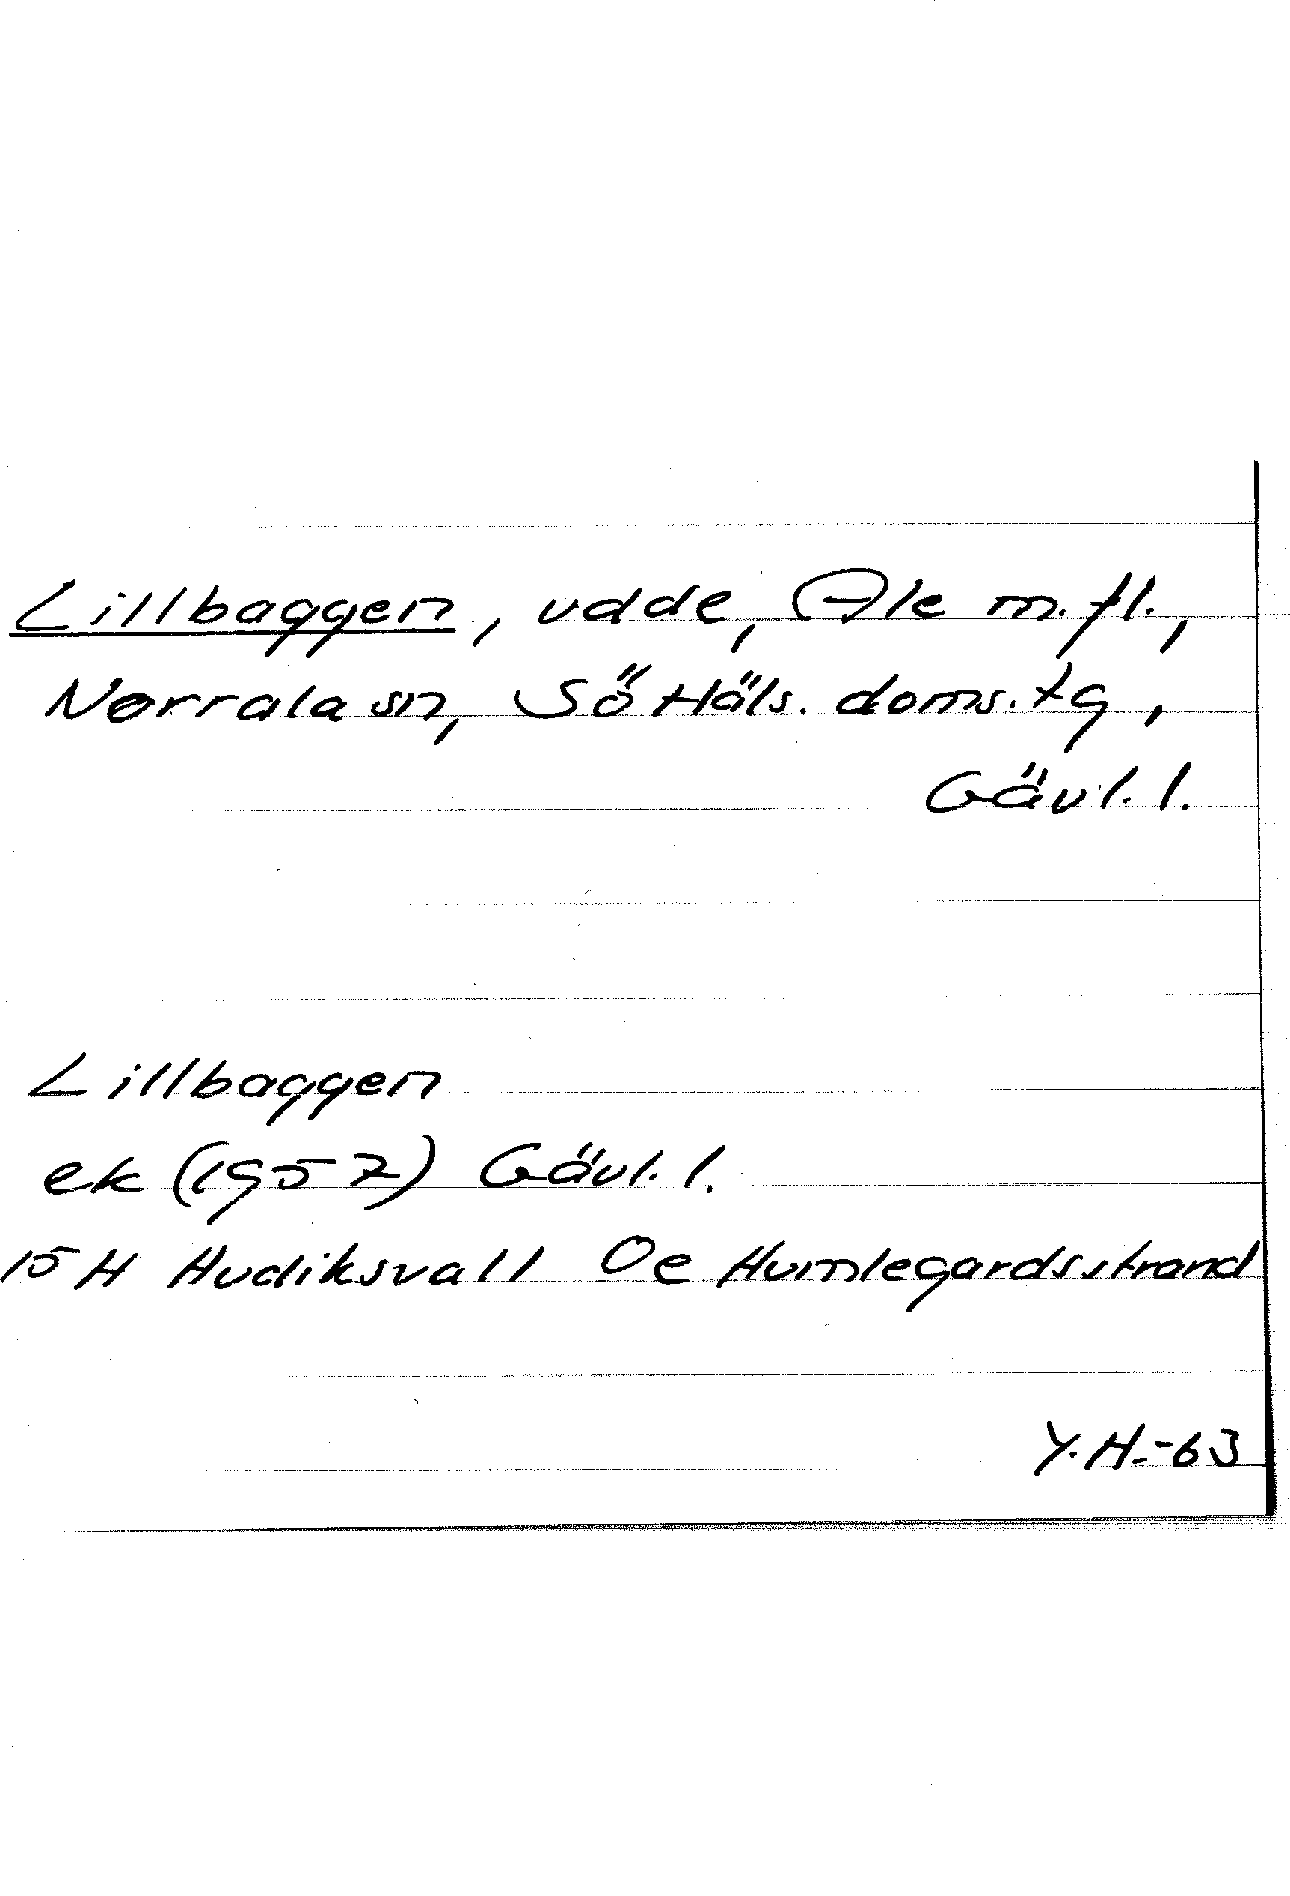 Lillbaggen, udde, Ale m.fl.,
Norrala sn, Sö Häls. doms. tg,
Gävl. l.
Lillbaggen
ek (1957) Gävl. l.
15 H Hudiksvall 0e Humlegardsstrand
Y.H.-63